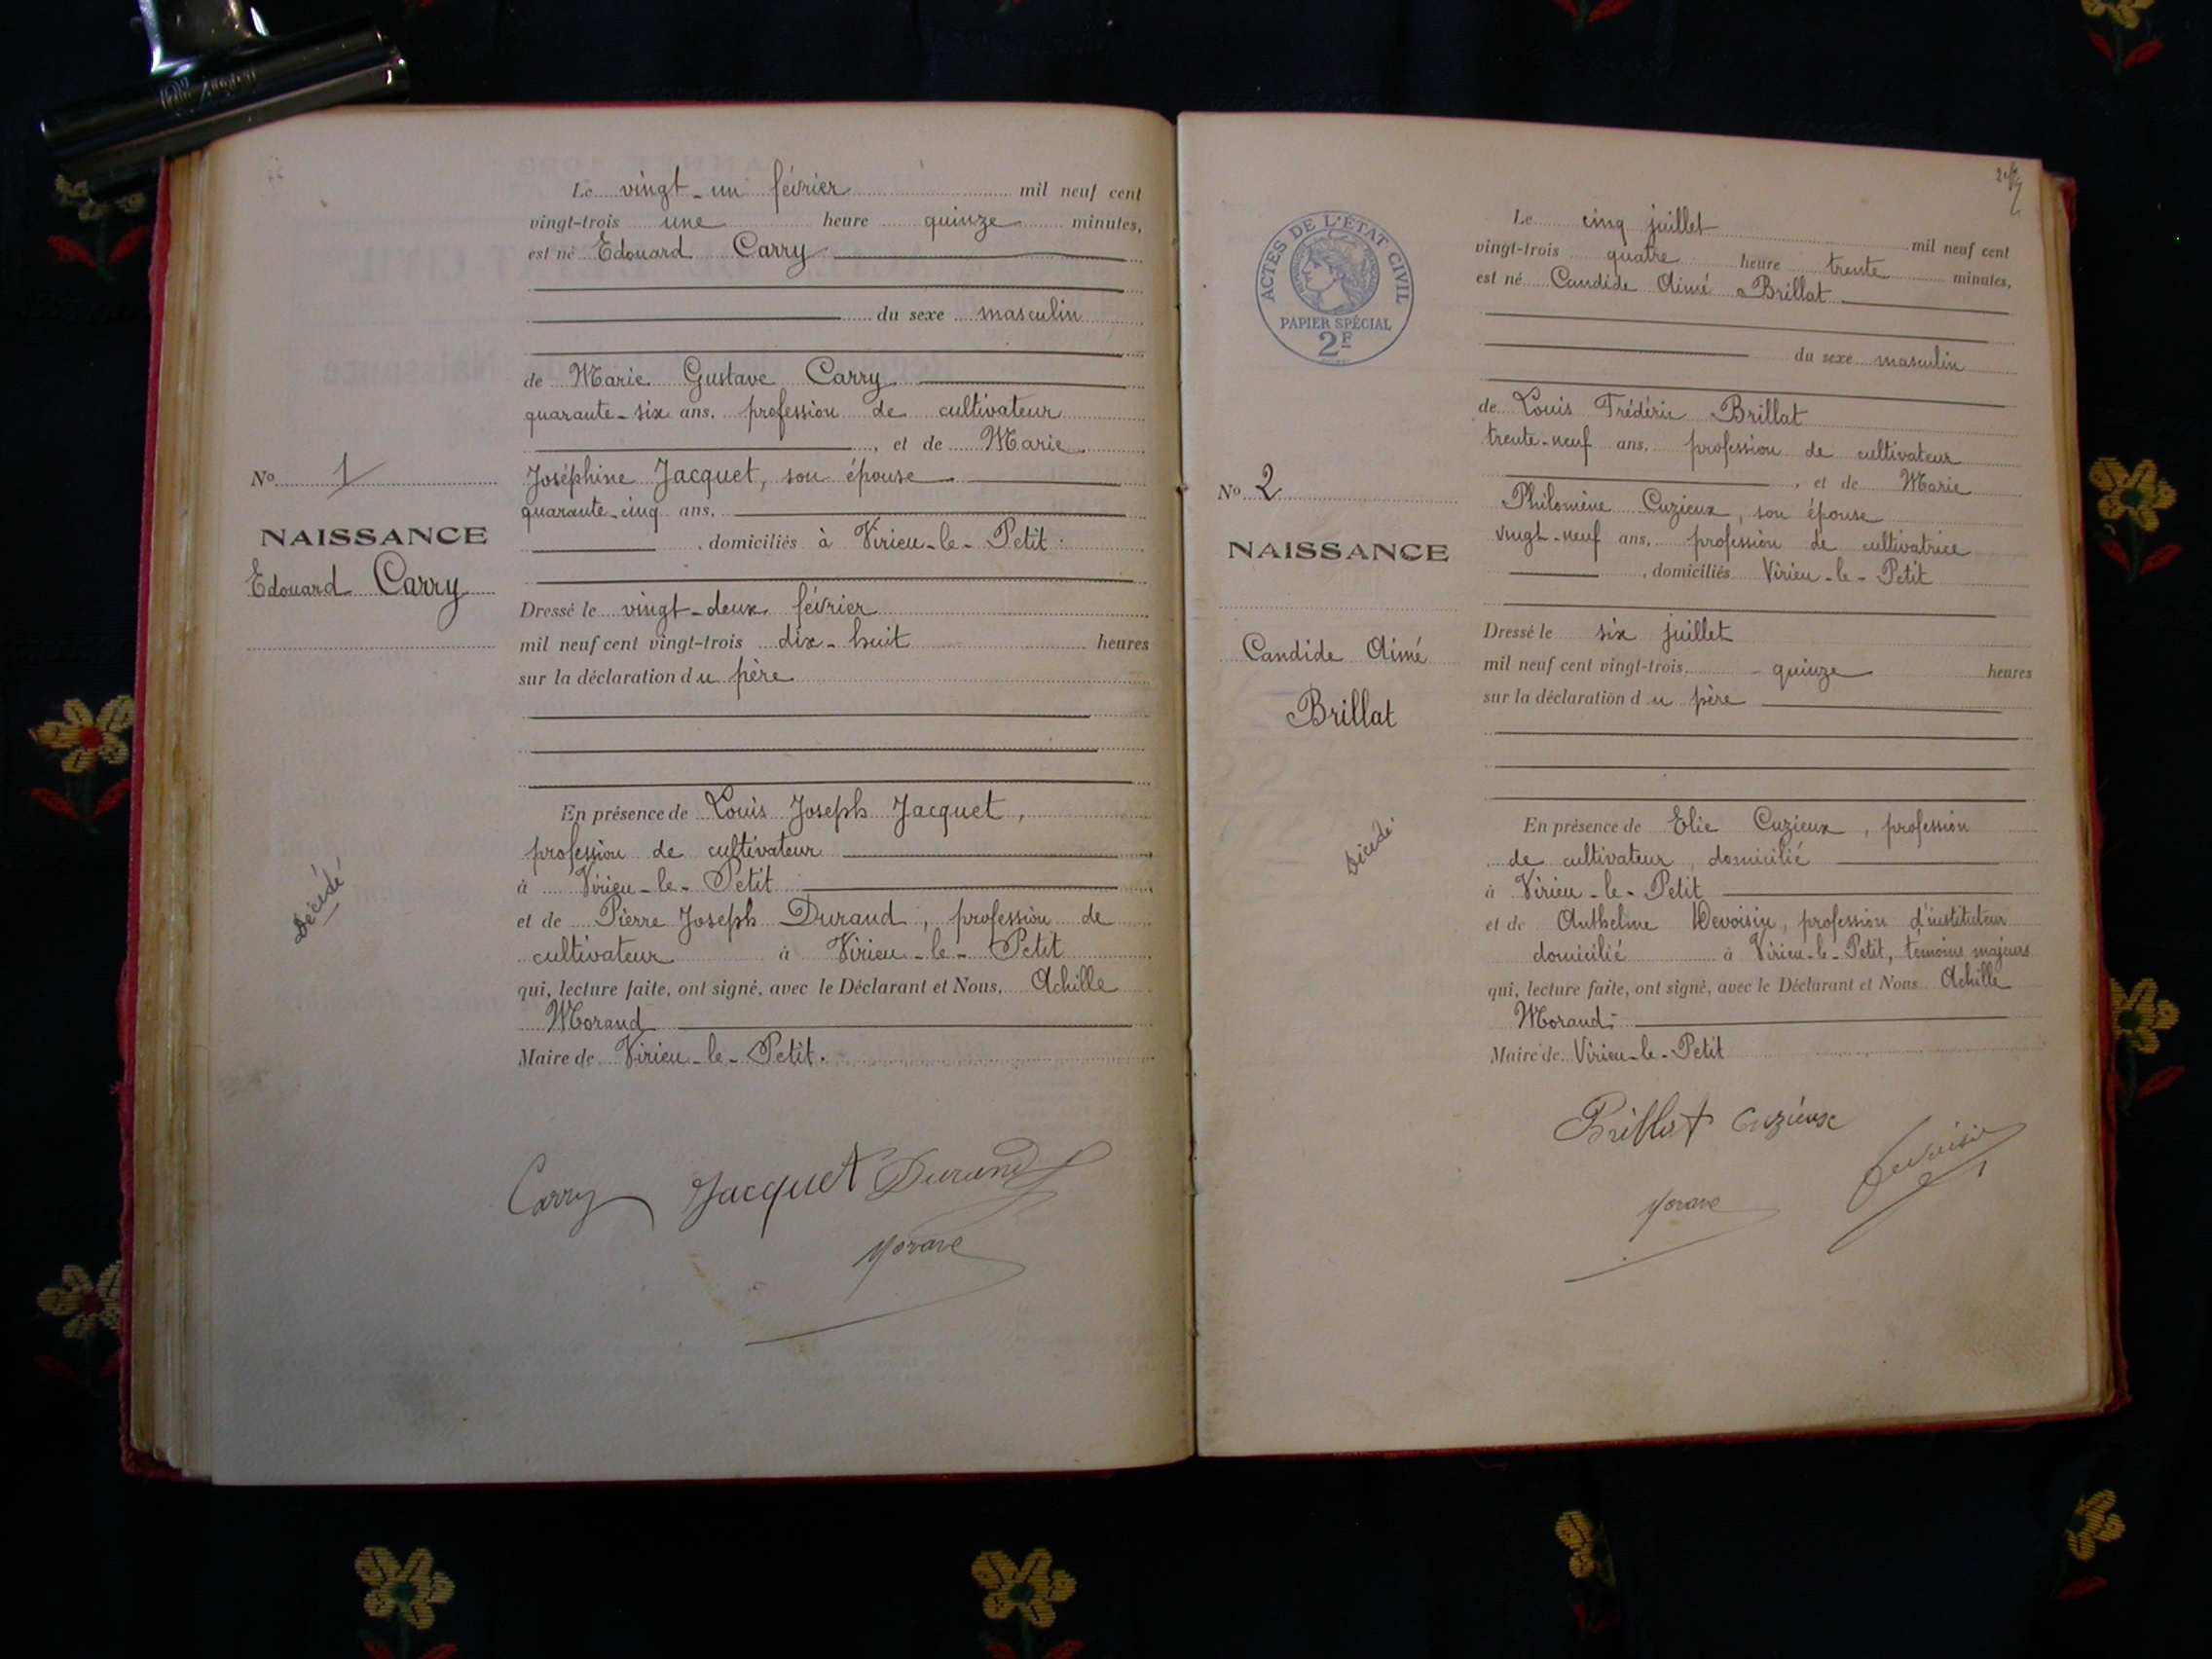 Le vingt-un février mil neuf cent
vingt-trois une heure quinze minutes,
est né Edouard Carry
du sexe masculin
de Marie Gustave Carry
quarante-six ans, profession de cultivateur
, et de Marie
Joséphine Jacquet, son épouse
quarante-cinq ans,
, domiciliés à Virieu-le-Petit.
Dressé le vingt-deux février
mil neuf cent vingt-trois dix-huit heures
sur la déclaration du père
En présence de Louis Joseph Jacquet,
profession de cultivateur
à Virieu-le-Petit
et de Pierre Joseph Durand, profession de
cultivateur à Virieu-le-Petit
qui, lecture faite, ont signé, avec le Déclarant et Nous, Achille
Morand
Maire de Virieu-le-Petit.
Carry Jacquet Durand
No 1
NAISSANCE
Edouard Carry
Décédé
ACTES DE L'ÉTAT CIVIL
PAPIER SPÉCIAL
2F
No 2
NAISSANCE
Candide Aimé
Brillat
Décédé.
Le cinq juillet mil neuf cent
vingt-trois quatre heure trente minutes,
est né Candide Aimé Brillat
du sexe masculin
de Louis Frédéric Brillat
trente-neuf ans, profession de cultivateur
, et de Marie
Philomène Cuzieux, son épouse
vingt-neuf ans, profession de cultivatrice
, domiciliés Virieu-le-Petit
Dressé le six juillet
mil neuf cent vingt-trois, quinze heures
sur la déclaration du père
En présence de Elie Cuzieux, profession
de cultivateur, domicilié
à Virieu-le-Petit
et de Anthelme Devoisin, profession d'instituteur
domicilié à Virieu-le-Petit, témoins majeurs
qui, lecture faite, ont signé, avec le Déclarant et Nous Achille
Morand
Maire de Virieu-le-Petit
Brillat Cuzieux
Devoisin